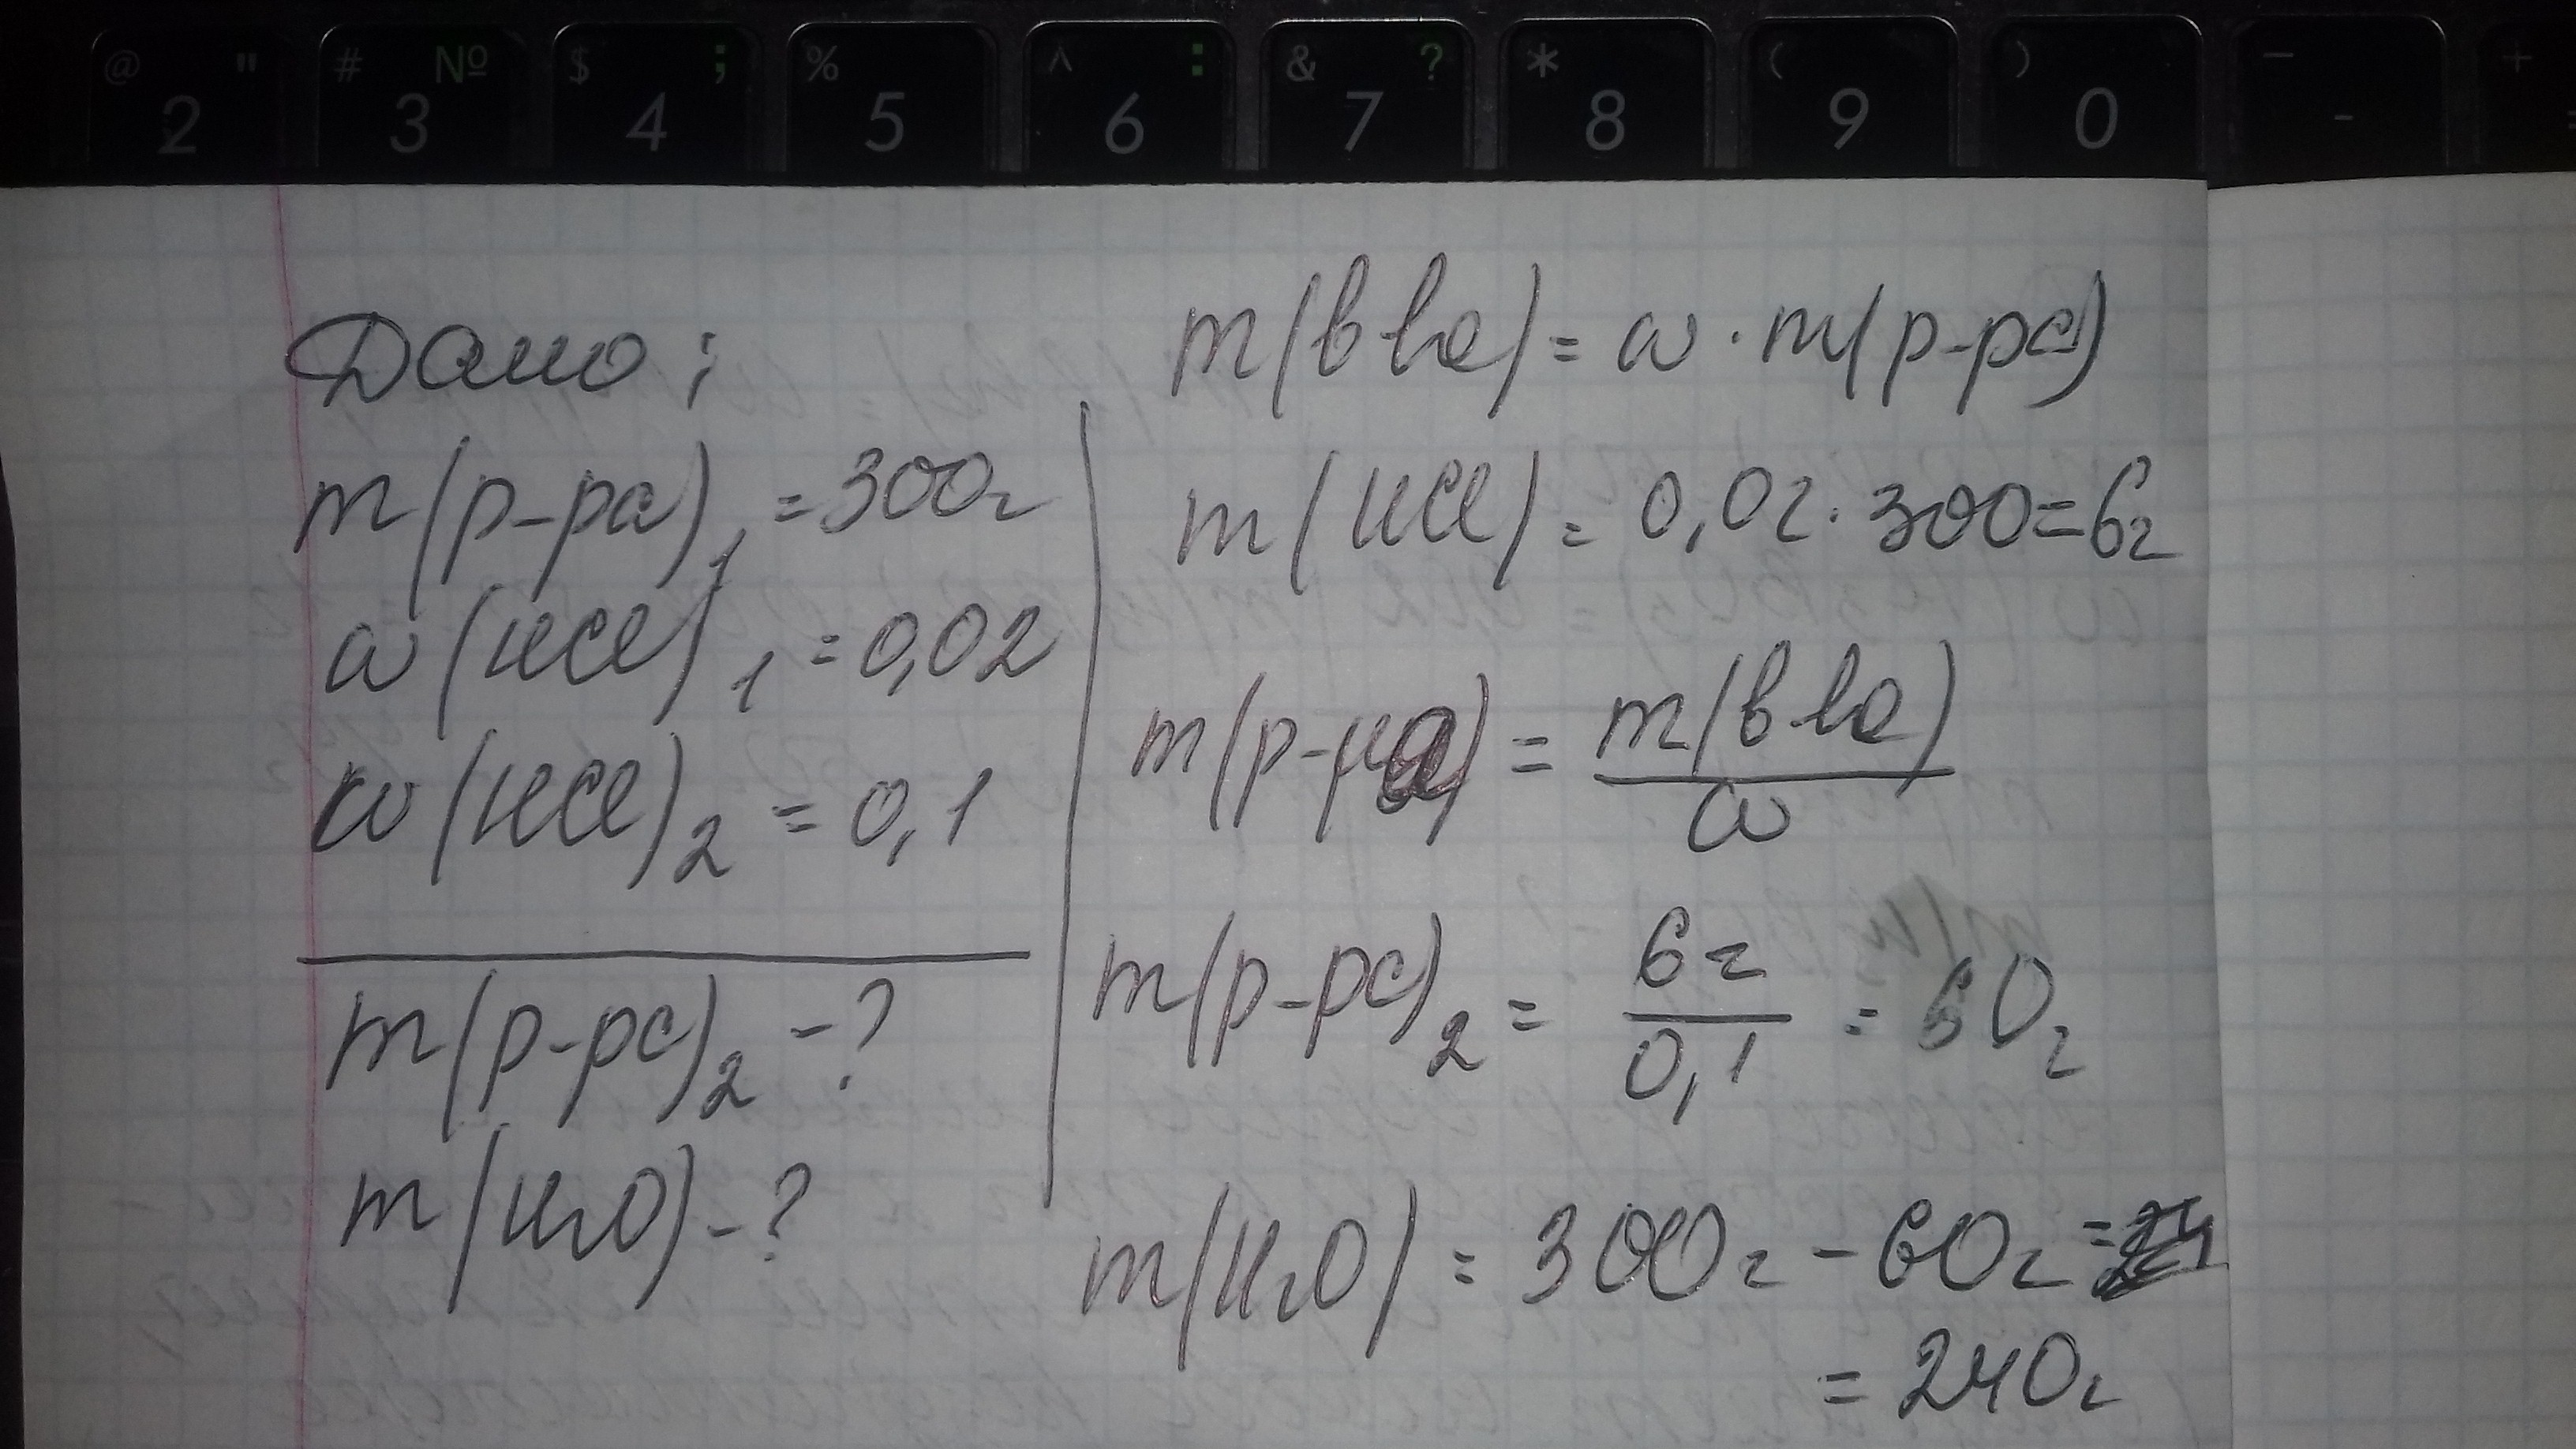 @ " # № $ ; % ^ : & ? * ( ) — +
2 3 4 5 6 7 8 9 0 -
Дано:
m(р-ра)₁ = 300г
ω(HCl)₁ = 0,02
ω(HCl)₂ = 0,1
m(р-ра)₂ - ?
m(H₂O) - ?
m(в-ва) = ω · m(р-ра)
m(HCl) = 0,02 · 300 = 6г
m(р-ра) = m(в-ва)
ω
m(р-ра)₂ = 6г = 60г
0,1
m(H₂O) = 300г - 60г =
= 240г